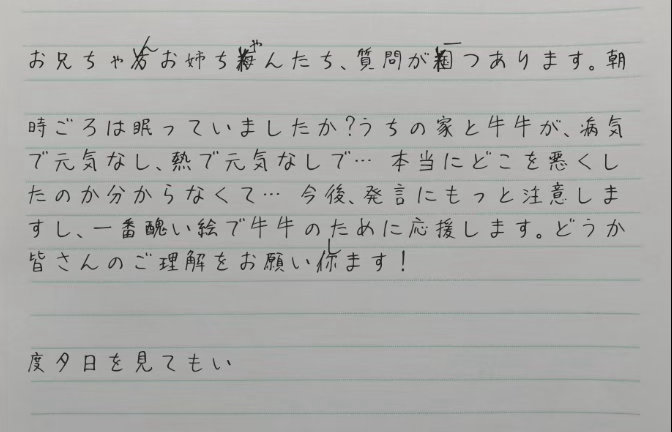 お兄ちゃんお姉ちゃんたち、質問が一つあります。朝
時ごろは眠っていましたか?うちの家と牛牛が、病気
で元気なし、熱で元気なしで… 本当にどこを悪くし
たのか分からなくて… 今後、発言にもっと注意しま
すし、一番醜い絵で牛牛のために応援します。どうか
皆さんのご理解をお願いします!
度夕日を見てもい